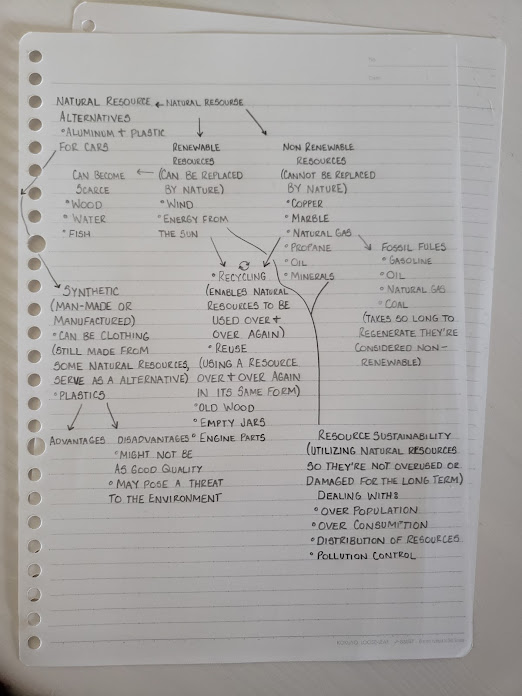 NATURAL RESOURCE ← NATURAL RESOURSE
ALTERNATIVES
° ALUMINUM + PLASTIC
FOR CARS
RENEWABLE
RESOURCES
(CAN BE REPLACED
BY NATURE)
° WIND
° ENERGY FROM
THE SUN
CAN BECOME
SCARCE
° WOOD
° WATER
° FISH
NON RENEWABLE
RESOURCES
(CANNOT BE REPLACED
BY NATURE)
° COPPER
° MARBLE
° NATURAL GAS
° PROPANE
° OIL
° MINERALS
FOSSIL FULES
° GASOLINE
° OIL
° NATURAL GAS
° COAL
(TAKES SO LONG TO
REGENERATE THEY'RE
CONSIDERED NON-
RENEWABLE)
SYNTHETIC
(MAN-MADE OR
MANUFACTURED)
° CAN BE CLOTHING
(STILL MADE FROM
SOME NATURAL RESOURCES,
SERVE AS A ALTERNATIVE)
° PLASTICS
ADVANTAGES
DISADVANTAGES
° MIGHT NOT BE
AS GOOD QUALITY
° MAY POSE A THREAT
TO THE ENVIRONMENT
° RECYCLING
(ENABLES NATURAL
RESOURCES TO BE
USED OVER +
OVER AGAIN)
° REUSE
(USING A RESOURCE
OVER + OVER AGAIN
IN ITS SAME FORM)
° OLD WOOD
° EMPTY JARS
° ENGINE PARTS
RESOURCE SUSTAINABILITY
(UTILIZING NATURAL RESOURCES
SO THEY'RE NOT OVERUSED OR
DAMAGED FOR THE LONG TERM)
DEALING WITH:
° OVER POPULATION
° OVER CONSUMPTION
° DISTRIBUTION OF RESOURCES
° POLLUTION CONTROL